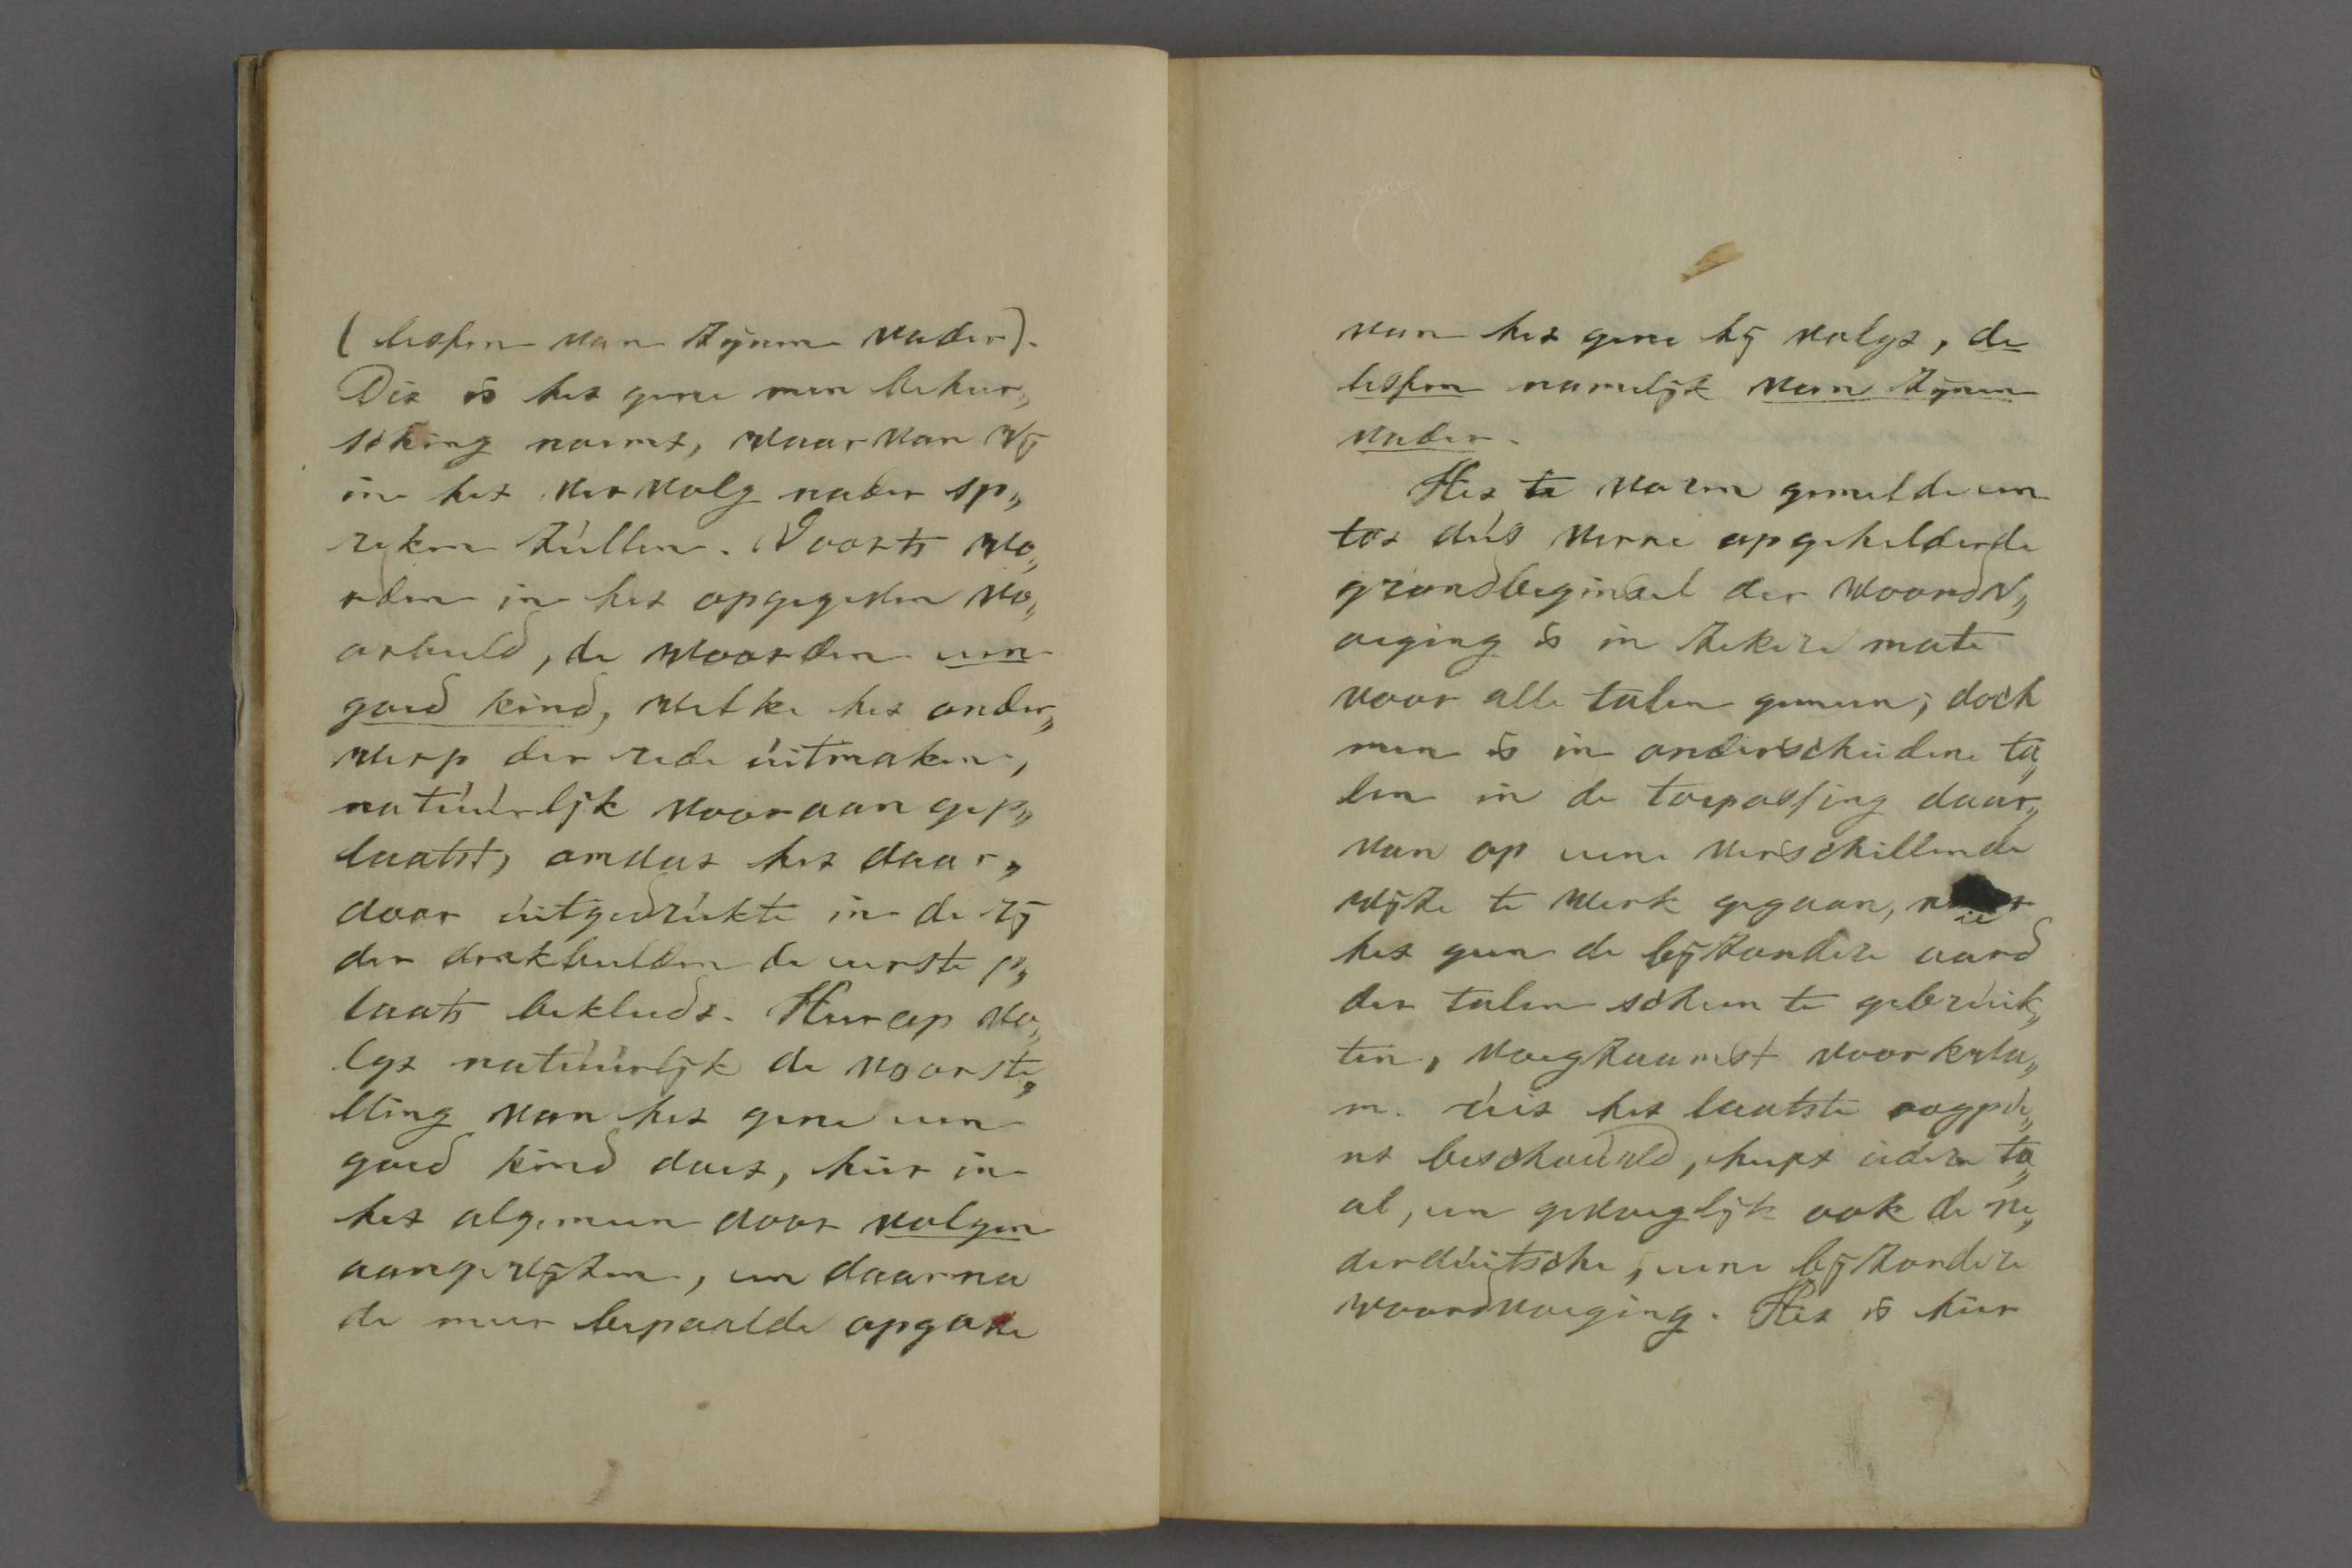 (lessen van zijnen vader).
Dit is het gene men beheer„
sching noemt, waar van wij
in het vervolg nader sp„
reken zullen. Voorts wo„
rden in het opgegeven vo„
orbeeld, de woorden een
goed kind, welke het onder„
werp der rede uitmaken,
natuurlijk vooraan gep„
laatst, omdat het daar„
door uitgedrukte in de rij
der denkbeelden de eerste p„
laats bekleedt. Hierop vo„
lgt natuurlijk de voorste„
lling van het gene een
goed kind doet, hier in
het algemeen door volgen
aangewijzen, en daarna
de meer bepaalde opgave
van het gene hij volgt, de
lessen namelijk van zijnen
vader.
Het te voren gemelde en
tot dus verre opgehelderde
grondbeginsel der woordv„
oeging is in zekere mate
voor alle talen gemeen; doch
men is in onderscheidene ta„
len in de toepassing daar„
van op eene verschillende
wijze te werk gegaan,
het geen de bijzondere aard
der talen scheen te gebruik„
ten, voegzaamst voor kwa„
m. uit het laatste oogpu„
nt beschouwd, heeft iedere ta„
al, en gevoeglijk ook de ne„
derduitsche, eene bijzondere
woordvoeging. Het is hier